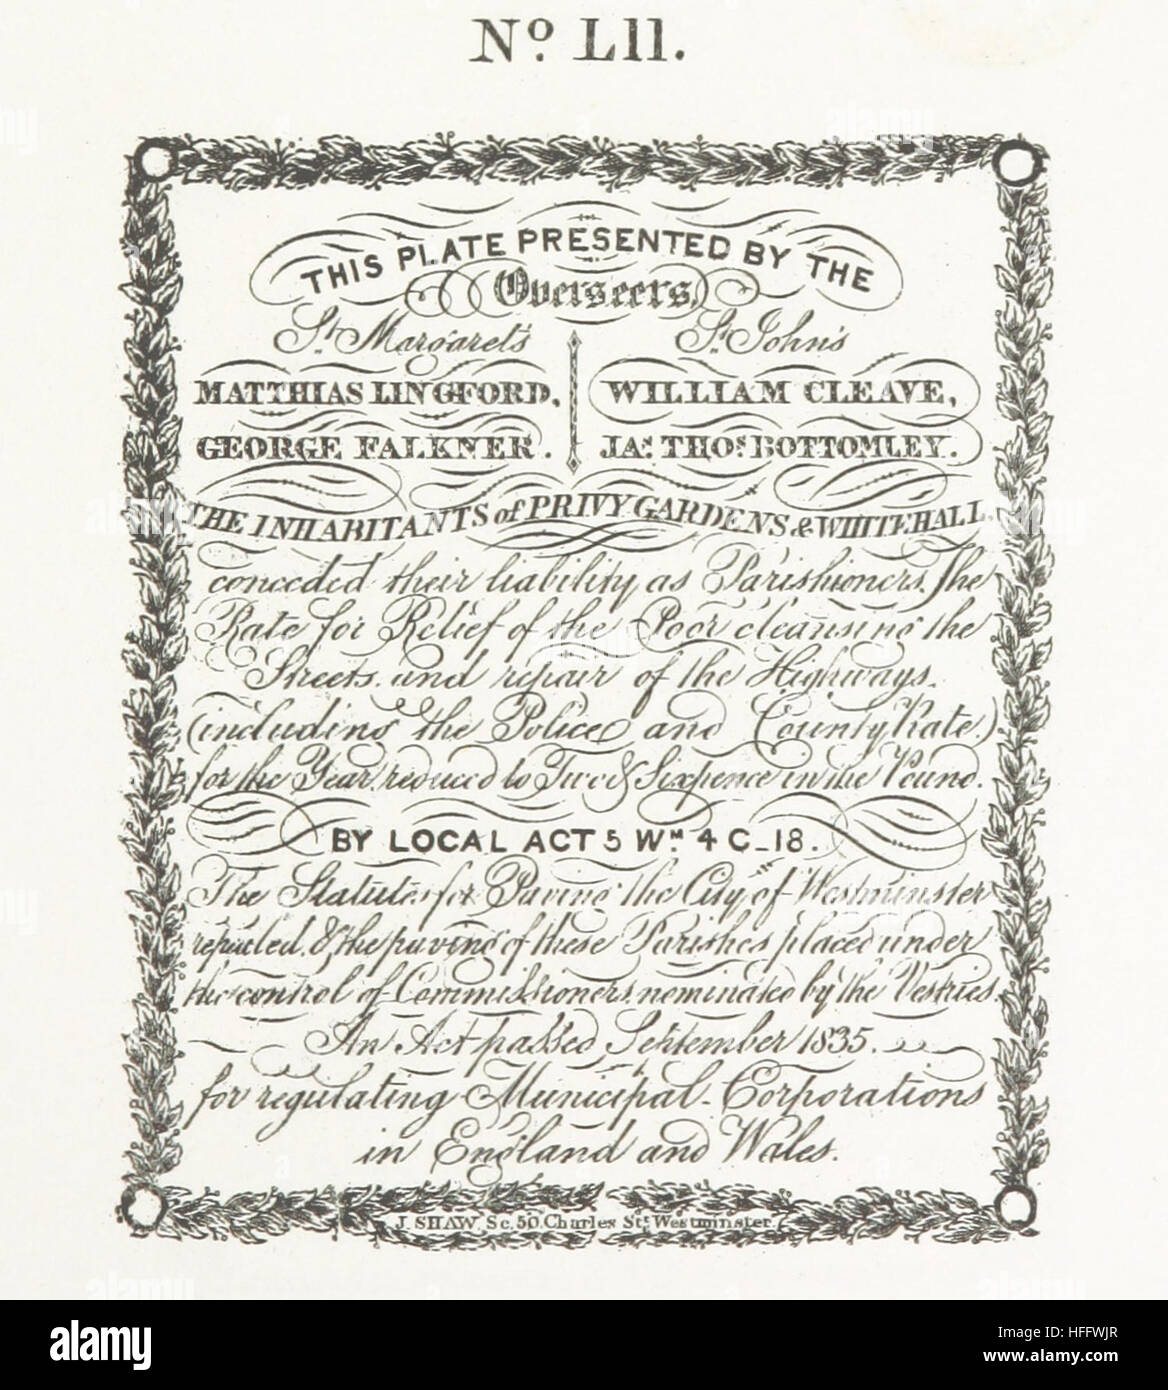 No. LII.
THIS PLATE PRESENTED BY THE
Overseers,
St. Margaret's
St. John's
MATTHIAS LINGFORD,
WILLIAM CLEAVE,
GEORGE FALKNER.
JAs. THOs. BOTTOMLEY.
THE INHABITANTS of PRIVY GARDENS & WHITEHALL,
conceded their liability as Parishioners. The
Rate for Relief of the Poor cleansing the
Streets and repair of the Highways.
(including the Police and County Rate)
for the Year reduced to Two & Sixpence in the Pound.
BY LOCAL ACT 5 Wm. 4 C-18.
The Statutes for Paving the City of Westminster
repealed & the paving of these Parishes placed under
the control of Commissioners nominated by the Vestries
An Act passed September 1835.
for regulating Municipal-Corporations
in England and Wales.
J. SHAW. Sc. 50. Charles St. Westminster.
alamy
Image ID: HFFWJR
www.alamy.com